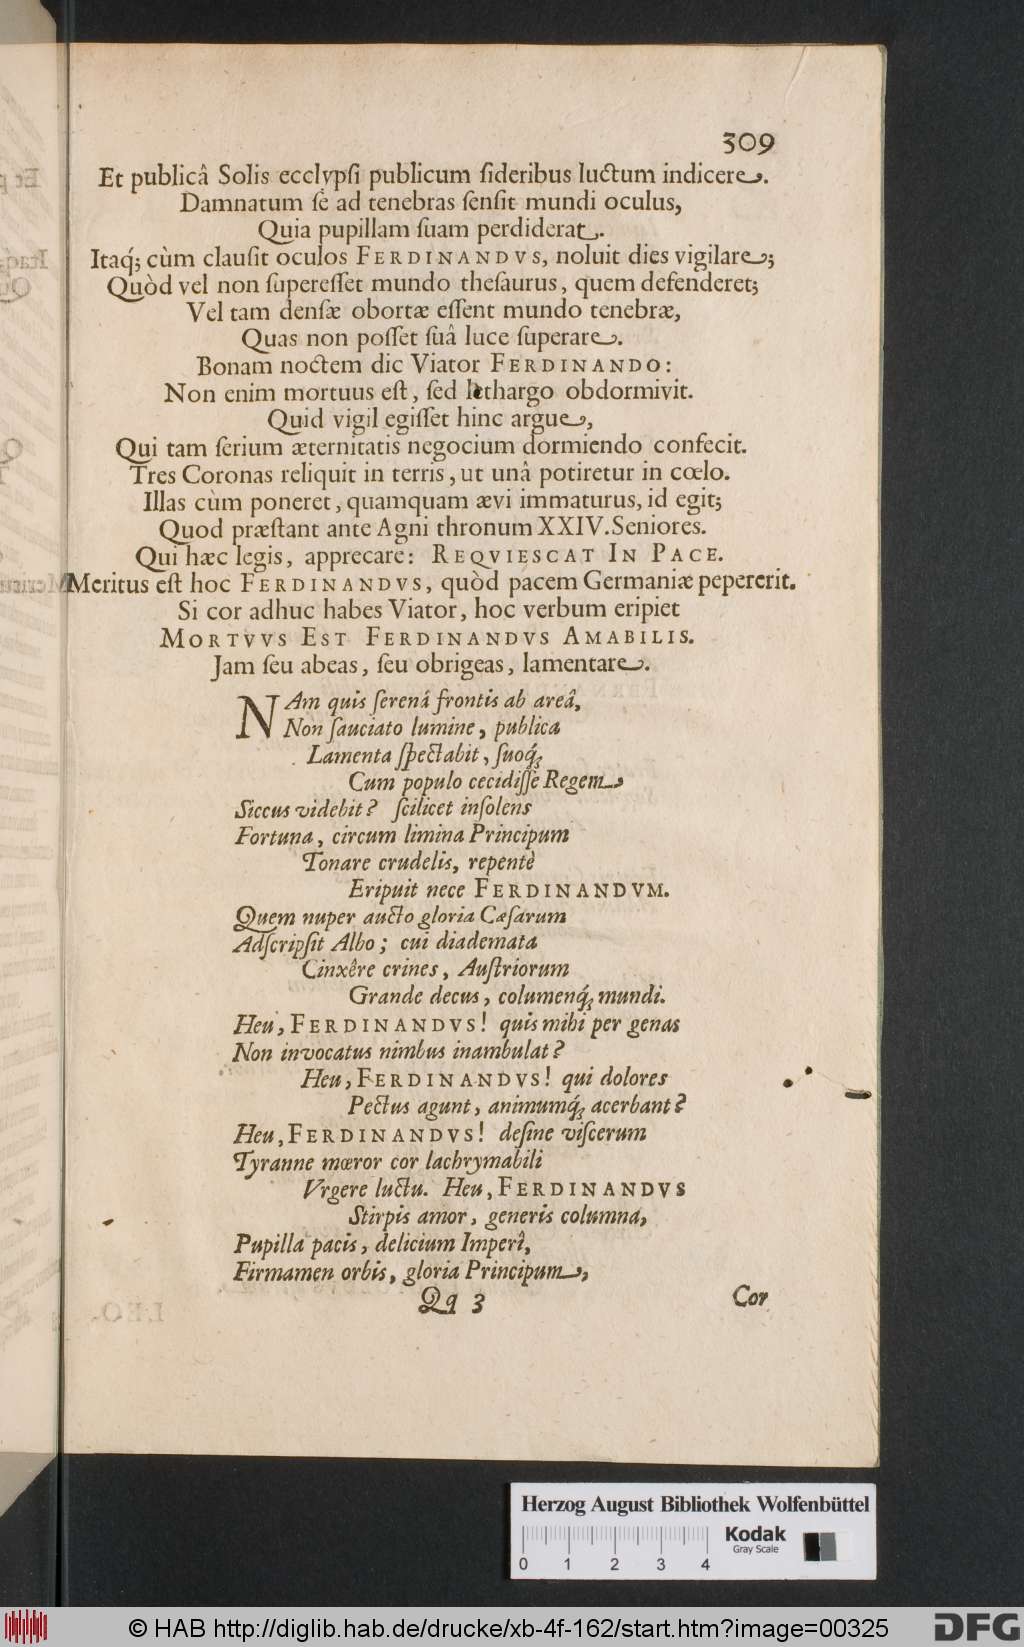 309
Et publicâ Solis ecclypsi publicum sideribus luctum indicere.
Damnatum sè ad tenebras sensit mundi oculus,
Quia pupillam suam perdiderat.
Itaq́; cùm clausit oculos FERDINANDVS, noluit dies vigilare;
Quòd vel non superesset mundo thesaurus, quem defenderet;
Vel tam densæ obortæ essent mundo tenebræ,
Quas non posset suâ luce superare.
Bonam noctem dic Viator FERDINANDO:
Non enim mortuus est, sed lethargo obdormivit.
Quid vigil egisset hinc argue,
Qui tam serium æternitatis negocium dormiendo confecit.
Tres Coronas reliquit in terris, ut unâ potiretur in cœlo.
Illas cùm poneret, quamquam ævi immaturus, id egit;
Quod præstant ante Agni thronum XXIV. Seniores.
Qui hæc legis, apprecare: REQVIESCAT IN PACE.
Meritus est hoc FERDINANDVS, quòd pacem Germaniæ pepererit.
Si cor adhuc habes Viator, hoc verbum eripiet
MORTVVS EST FERDINANDVS AMABILIS.
Jam seu abeas, seu obrigeas, lamentare.
NAm quis serenâ frontis ab areâ,
Non sauciato lumine, publica
Lamenta spectabit, suoq́;
Cum populo cecidisse Regem,
Siccus videbit? scilicet insolens
Fortuna, circum limina Principum
Tonare crudelis, repentè
Eripuit nece FERDINANDVM.
Quem nuper aucto gloria Cæsarum
Adscripsit Albo; cui diademata
Cinxêre crines, Austriorum
Grande decus, columenq́; mundi.
Heu, FERDINANDVS! quis mihi per genas
Non invocatus nimbus inambulat?
Heu, FERDINANDVS! qui dolores
Pectus agunt, animumq́; acerbant?
Heu, FERDINANDVS! desine viscerum
Tyranne mœror cor lachrymabili
Vrgere luctu. Heu, FERDINANDVS
Stirpis amor, generis columna,
Pupilla pacis, delicium Imperî,
Firmamen orbis, gloria Principum,
Qq 3
Cor
Herzog August Bibliothek Wolfenbüttel
0 1 2 3 4
Kodak
Gray Scale
© HAB http://diglib.hab.de/drucke/xb-4f-162/start.htm?image=00325
DFG